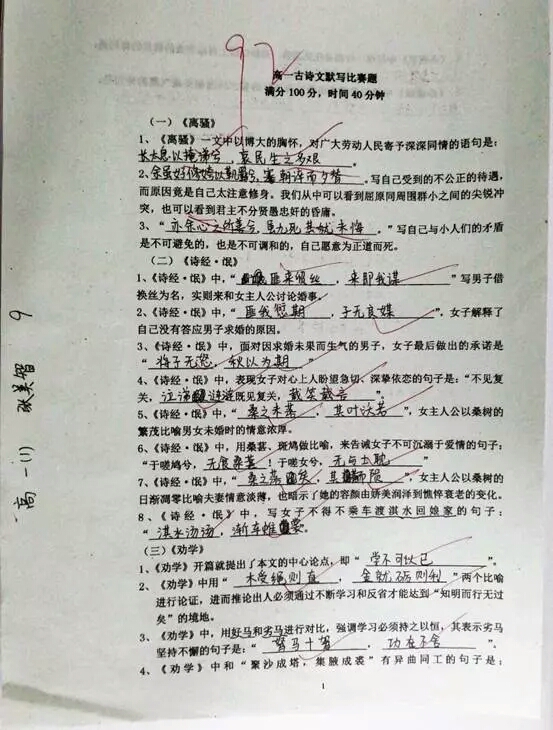 92
高一古诗文默写比赛题
满分100分，时间40分钟
（一）《离骚》
1、《离骚》一文中以博大的胸怀，对广大劳动人民寄予深深同情的语句是：
长太息以掩涕兮，哀民生之多艰。
2、余虽好修姱以鞿羁兮，謇朝谇而夕替。写自己受到的不公正的待遇，
而原因竟是自己太注意修身。我们从中可以看到屈原同周围群小之间的尖锐冲
突，也可以看到君主不分贤愚忠奸的昏庸。
3、“亦余心之所善兮，虽九死其犹未悔。写自己与小人们的矛盾
是不可避免的，也是不可调和的，自己愿意为正道而死。
（二）《诗经·氓》
1、《诗经·氓》中，“匪来贸丝，来即我谋”写男子借
换丝为名，实则来和女主人公讨论婚事。
2、《诗经·氓》中，“匪我愆期，子无良媒”，女子解释了
自己没有答应男子求婚的原因。
3、《诗经·氓》中，面对因求婚未果而生气的男子，女子最后做出的承诺是
“将子无怒，秋以为期”
4、《诗经·氓》中，表现女子对心上人盼望急切、深挚依恋的句子是：“不见复
关，泣涕涟涟既见复关，载笑载言”
5、《诗经·氓》中，“桑之未落，其叶沃若”，女主人公以桑树的
繁茂比喻男女未婚时的情意浓厚。
6、《诗经·氓》中，用桑葚、斑鸠做比喻，来告诫女子不可沉溺于爱情的句子：
“于嗟鸠兮，无食桑葚！于嗟女兮，无与士耽”
7、《诗经·氓》中，“桑之落矣，其黄而陨”，女主人公以桑树的
日渐凋零比喻夫妻情意淡薄，也暗示了她的容颜由娇美润泽到憔悴衰老的变化。
8、《诗经·氓》中，写女子不得不乘车渡淇水回娘家的句子：
“淇水汤汤，渐车帷裳。
（三）《劝学》
1、《劝学》开篇就提出了本文的中心论点，即“学不可以已”。
2、《劝学》中用“木受绳则直，金就砺则利”两个比喻
进行论证，进而推论出人必须通过不断学习和反省才能达到“知明而行无过
矣”的境地。
3、《劝学》中，用好马和劣马进行对比，强调学习必须持之以恒，其表示劣马
坚持不懈的句子是：“驽马十驾，功在不舍”。
4、《劝学》中和“聚沙成塔，集腋成裘”有异曲同工的句子是：
1
高一(1) 张美智 9